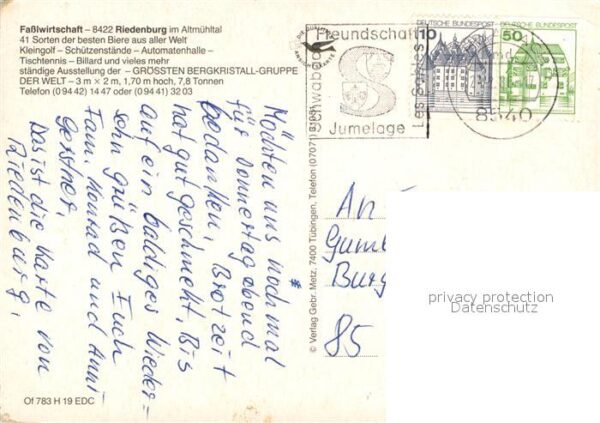 Faßlwirtschaft – 8422 Riedenburg im Altmühltal
41 Sorten der besten Biere aus aller Welt
Kleingolf – Schützenstände – Automatenhalle –
Tischtennis – Billard und vieles mehr
ständige Ausstellung der – GRÖSSTEN BERGKRISTALL-GRUPPE
DER WELT – 3 m × 2 m, 1,70 m hoch, 7,8 Tonnen
Telefon (0 94 42) 14 47 oder (0 94 41) 32 03
Möchten uns nochmal
für Donnertag abend
bedanken, Brotzeit
hat gut geschmeckt, Bis
auf ein baldiges Wieder=
sehn grüßen Euch
Fam. Konrad und Anni
Gerstner,
Das ist die Karte von
Riedenburg,
Of 783 H 19 EDC
© Verlag Gebr. Metz, 7400 Tübingen, Telefon (07071)
Freundschaft
Schwabach
Les Sables
Jumelage
DEUTSCHE BUNDESPOST
10
DEUTSCHE BUNDESPOST
50
8540
An
Gumb
Burg
85
privacy protection
Datenschutz